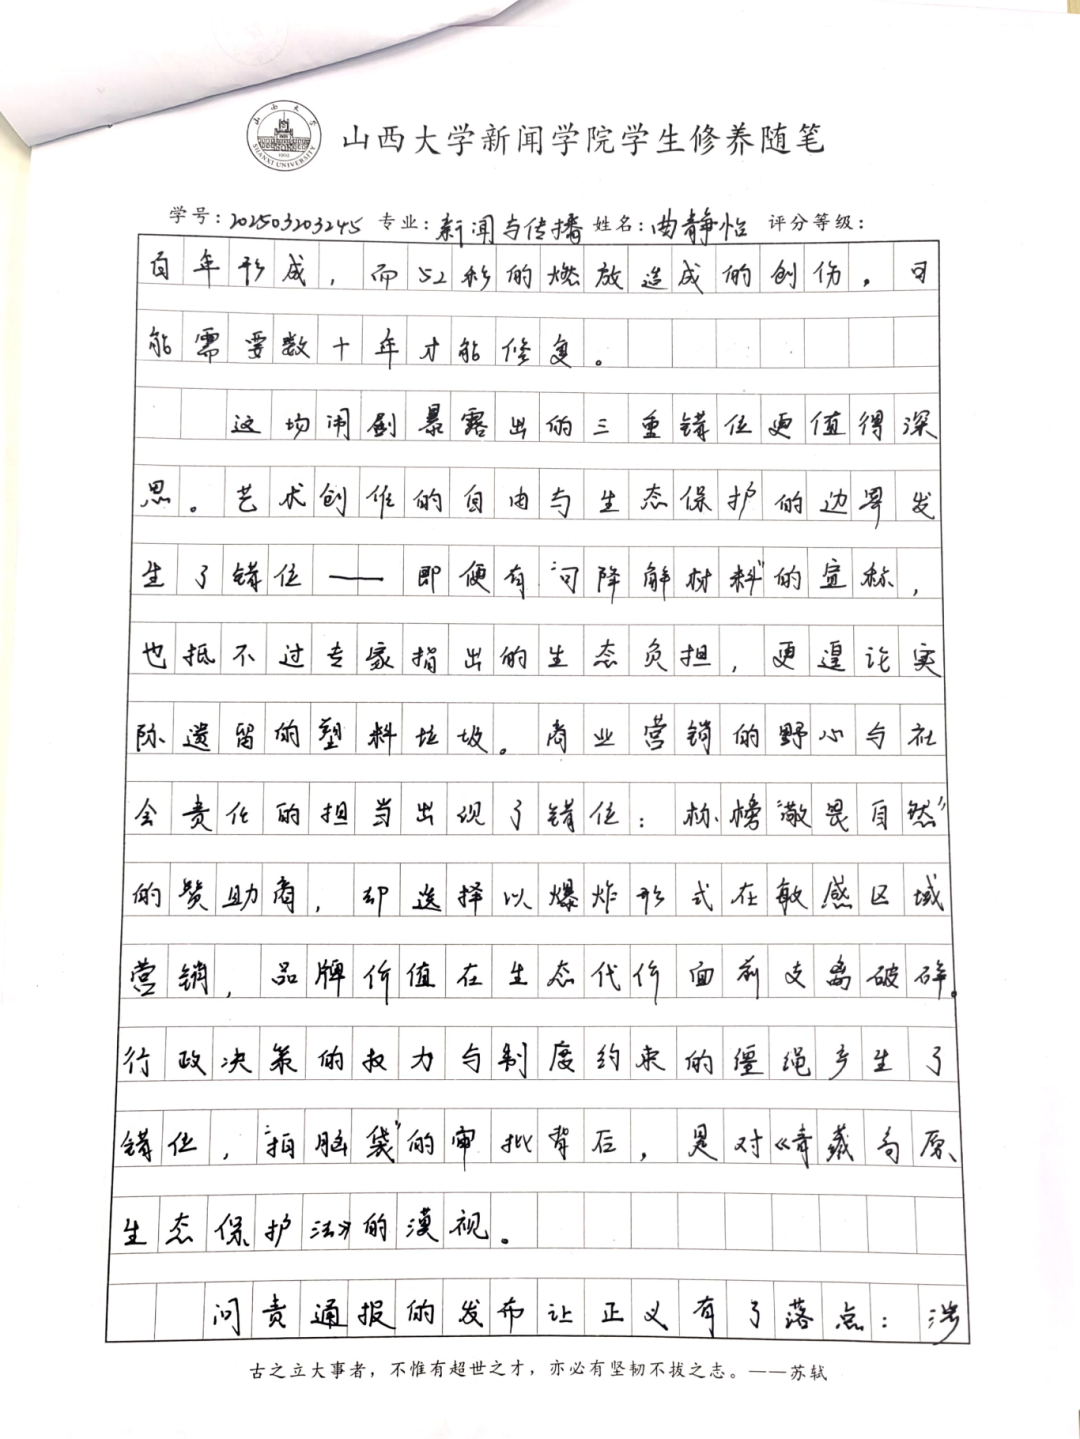 山西大学
SHANXI UNIVERSITY
1902
山西大学新闻学院学生修养随笔
学号：202503203245 专业：新闻与传播 姓名：曲静怡 评分等级：
百年形成，而52秒的燃放造成的创伤，可
能需要数十年才能修复。
这场闹剧暴露出的三重错位更值得深
思。艺术创作的自由与生态保护的边界发
生了错位——即便有“可降解材料”的宣称，
也抵不过专家指出的生态负担，更遑论实
际遗留的塑料垃圾。商业营销的野心与社
会责任的担当出现了错位：标榜“敬畏自然”
的赞助商，却选择以爆炸形式在敏感区域
营销，品牌价值在生态代价面前支离破碎。
行政决策的权力与制度约束的缰绳产生了
错位，“拍脑袋”的审批背后，是对《青藏高原
生态保护法》的漠视。
问责通报的发布让正义有了落点：涉
古之立大事者，不惟有超世之才，亦必有坚韧不拔之志。——苏轼